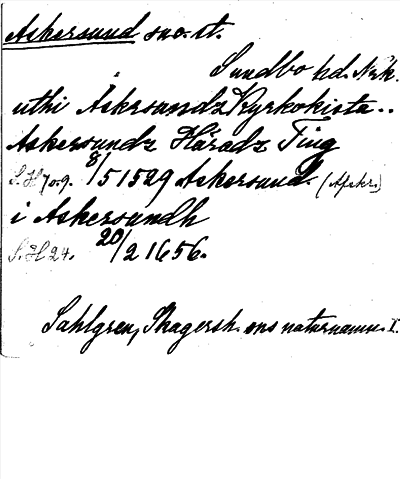 Askersund sno. st.
Sundbo hd. Nrk.
uthi Åskrsundz Kyrkokista..
Askersundz Häradz Ting
S.H 70.9. 8/5 1529 Askersund. (Afskr.)
i Askersundh
S.H 24. 20/2 1656.
Sahlgren, Skagersh. ons naturnamn. I.